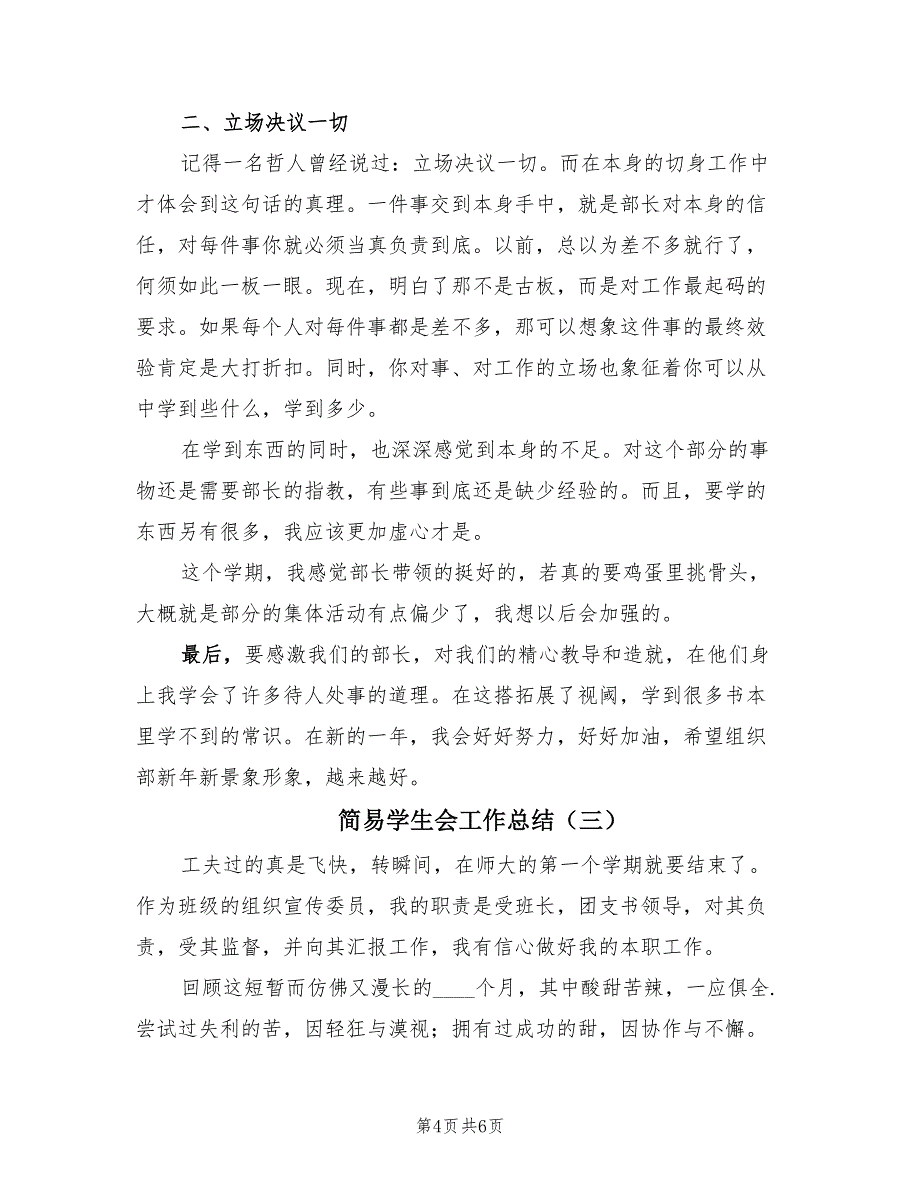 二、立场决议一切
记得一名哲人曾经说过：立场决议一切。而在本身的切身工作中
才体会到这句话的真理。一件事交到本身手中，就是部长对本身的信
任，对每件事你就必须当真负责到底。以前，总以为差不多就行了，
何须如此一板一眼。现在，明白了那不是古板，而是对工作最起码的
要求。如果每个人对每件事都是差不多，那可以想象这件事的最终效
验肯定是大打折扣。同时，你对事、对工作的立场也象征着你可以从
中学到些什么，学到多少。
在学到东西的同时，也深深感觉到本身的不足。对这个部分的事
物还是需要部长的指教，有些事到底还是缺少经验的。而且，要学的
东西另有很多，我应该更加虚心才是。
这个学期，我感觉部长带领的挺好的，若真的要鸡蛋里挑骨头，
大概就是部分的集体活动有点偏少了，我想以后会加强的。
最后，要感激我们的部长，对我们的精心教导和造就，在他们身
上我学会了许多待人处事的道理。在这搭拓展了视阈，学到很多书本
里学不到的常识。在新的一年，我会好好努力，好好加油，希望组织
部新年新景象形象，越来越好。
简易学生会工作总结（三）
工夫过的真是飞快，转瞬间，在师大的第一个学期就要结束了。
作为班级的组织宣传委员，我的职责是受班长，团支书领导，对其负
责，受其监督，并向其汇报工作，我有信心做好我的本职工作。
回顾这短暂而仿佛又漫长的____个月，其中酸甜苦辣，一应俱全.
尝试过失利的苦，因轻狂与漠视；拥有过成功的甜，因协作与不懈。
第4页 共6页